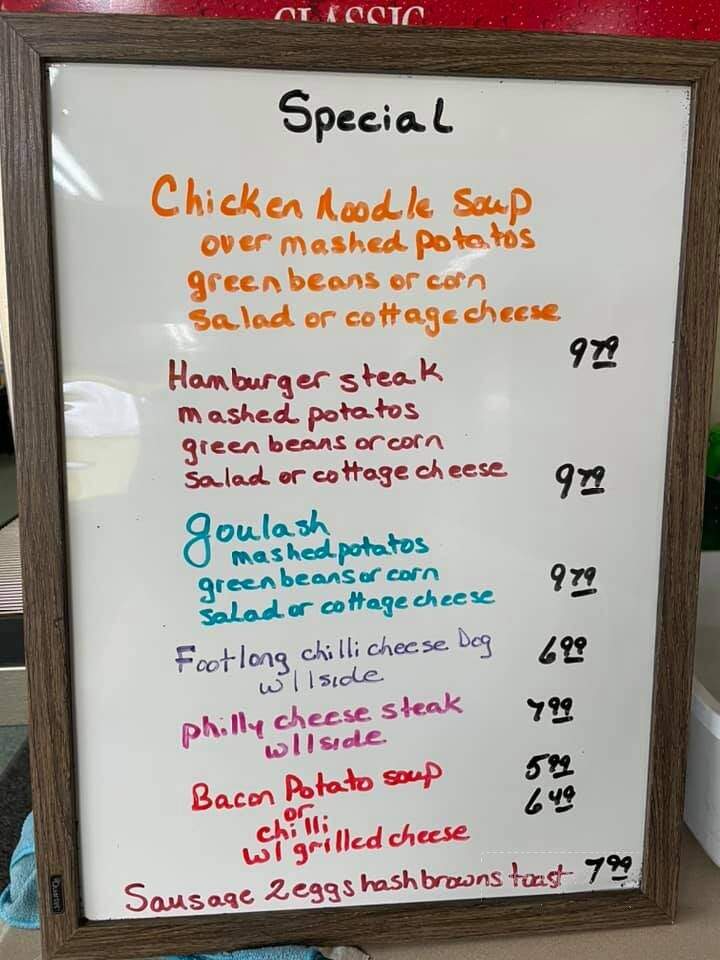 CLASSIC
Special
Chicken Noodle Soup
over mashed potatos
green beans or corn
salad or cottage cheese
9 79
Hamburger steak
mashed potatos
green beans or corn
salad or cottage cheese 9 79
goulash
mashed potatos
green beans or corn 9 79
salad or cottage cheese
Footlong chilli cheese Dog 6 99
w/1side
philly cheese steak 7 99
w/1side
Bacon Potato soup 5 99
or 6 49
chilli
w/ grilled cheese
Sausage 2eggs hashbrowns toast 7 99